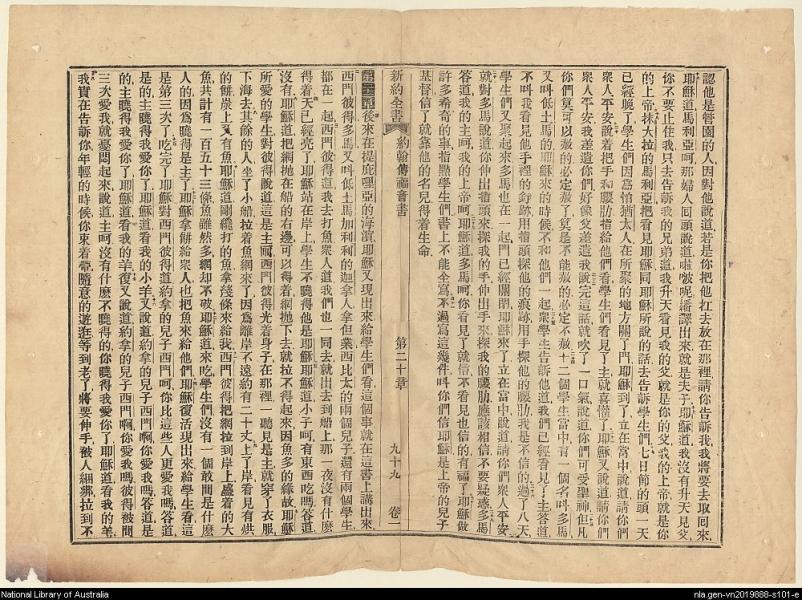 認他是管園的人因對他說道若是你把他扛去放在那裡請你告訴我我將要去取回來
耶穌道馬利亞呵那婦人回頭說道啦波呢繙譯出來就是夫子耶穌道我沒有升天見父
你不要止住我只去告訴我的兄弟道我升天看見我的父就是你的父我的上帝就是你
的上帝抹大拉的馬利亞把看見耶穌同耶穌所說的話去告訴學生們七日節的頭一天
已經晚了學生們因爲怕猶太人在所聚的地方關了門耶穌到了立在當中說道請你們
衆人平安說着把手和腰肋指給他們看學生們看見了主就喜懽了耶穌又說道請你們
衆人平安我差遣你們好像父差遣我說完這話就吹了一口氣說道你們可受聖神但凡
你們莫可以赦的必定赦了莫是不能赦的必定不赦十二個學生當中有一個名叫多馬
又叫低土馬的耶穌來的時候不和他們一起衆學生告訴他道我們已經看見了主答道
不叫我看見他手裡的釘跡用指頭探他的痕跡用手探他的腰肋我是不信的過了八天
學生們又聚起來多馬也在一起門已經關閉耶穌來了立在當中說道請你們衆人平安
就對多馬說道你伸出指頭來探我的手伸出手來探我的腰肋應該相信不要疑惑多馬
答道我的主呵我的上帝呵耶穌道多馬呵你看見了就信不看見也信的有福了耶穌做
許多希奇的事指點學生們書上不能全寫不過寫這幾件叫你們信耶穌是上帝的兒子
基督信了就靠他的名兒得着生命
新約全書 約翰傳福音書 第二十章 九十九 卷一
後來在提庇哩亞的海濱耶穌又現出來給學生們看這個事就在這書上講出來
西門彼得多馬又叫低土馬加利利的迦拿人拿但業西比太的兩個兒子還有兩個學生
都在一起西門彼得道我去打魚衆人道我們也一同去就出去到船上那一夜沒有什麼
得着天已經亮了耶穌站在岸上學生不曉得他是耶穌耶穌道小子呵有東西吃嗎答道
沒有耶穌道把網拋在船的右邊可以得着網拋下去就拉不得起來因魚多的緣故耶穌
所愛的學生對彼得說道這是主西門彼得光着身子在那裡一聽見是主就穿了衣服
下海去其餘的人坐了小船拉着魚網來了因爲離岸不遠約有二十丈上了岸看見有烘
的餅炭上又有魚耶穌道剛纔打的魚拿幾條來給我西門彼得把網拉到岸上盛着的大
魚共計有一百五十三條魚雖然多網却不破耶穌道來吃學生們沒有一個敢問是什麼
人的因爲曉得是主了耶穌拿餅給衆人也把魚來給他們耶穌復活現出來給學生看這
是第三次了吃完了耶穌對西門彼得道約拿的兒子西門呵你比這些人更愛我嗎答道
是的主曉得我愛你了耶穌道看我的小羊又說道約拿的兒子西門啊你愛我嗎答道是
的主曉得我愛你了耶穌道看我的羊復又說道約拿的兒子西門啊你愛我嗎彼得被問
三次愛我就憂悶起來說道主呵沒有什麼不曉得的你曉得我愛你了耶穌道看我的羊
我實在告訴你年輕的時候你束着帶隨意的遊逛等到老了將要伸手被人綑綁拉到不
National Library of Australia
nla.gen-vn2019888-s101-e